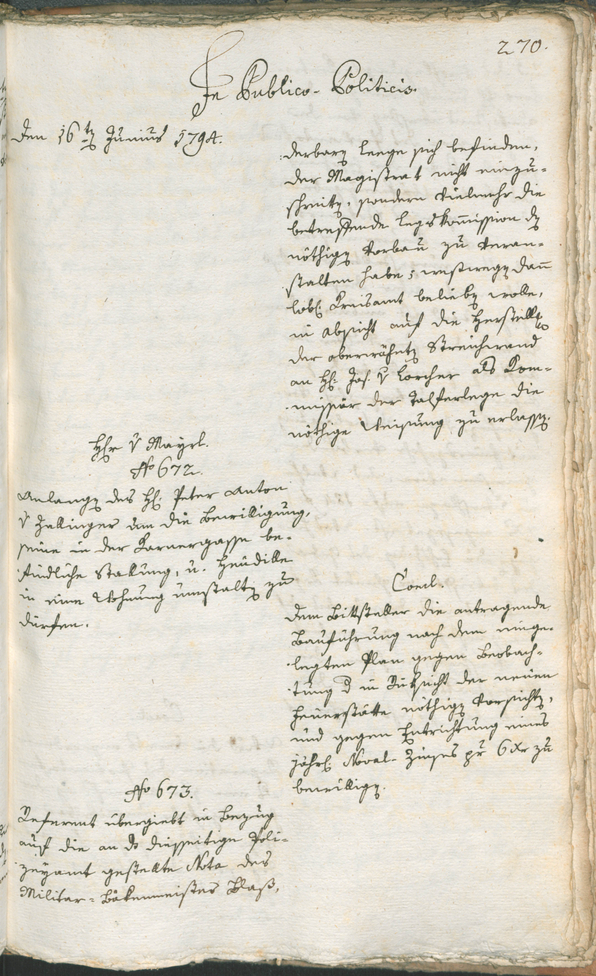 270.
In Publico-Politicis.
Den 16ten Junius 1794.
derbarn Leege sich befinden,
der Magistrat nicht einzu-
schreiten, sondern vielmehr die
betreffende Legskommission den
nöthigen Vorbau zu veran-
stalten habe; weßwegen dann
löbl. Kreisamt belieben wolle,
in Absicht auf die Herstellung
der oberwähnten Streichwand
an H. Jos. v Lorcher als Kom-
missär der Talferlege die
nöthige Weisung zu erlassen.
Hr v Mayrl.
No 672.
Anlangen des H. Peter Anton
v Zallinger um die Bewilligung,
seine in der Karnergasse be-
findliche Stallung, u. Heudille
in eine Wohnung umstalten zu
dürfen.
Concl.
Dem Bittsteller die antragende
Bauführung nach dem einge-
legten Plan gegen Beobach-
tung d in Rücksicht der neuen
Feuerstätte nöthigen Vorsichten,
und gegen Entrichtung eines
jährl. Noval-Zinses pr 6 Xr zu
bewilligen.
No 673.
Referent übergiebt in Bezug
auf die an das diesseitige Poli-
zeyamt gestellte Nota des
Militar-Bäkenmeisters Blaß,